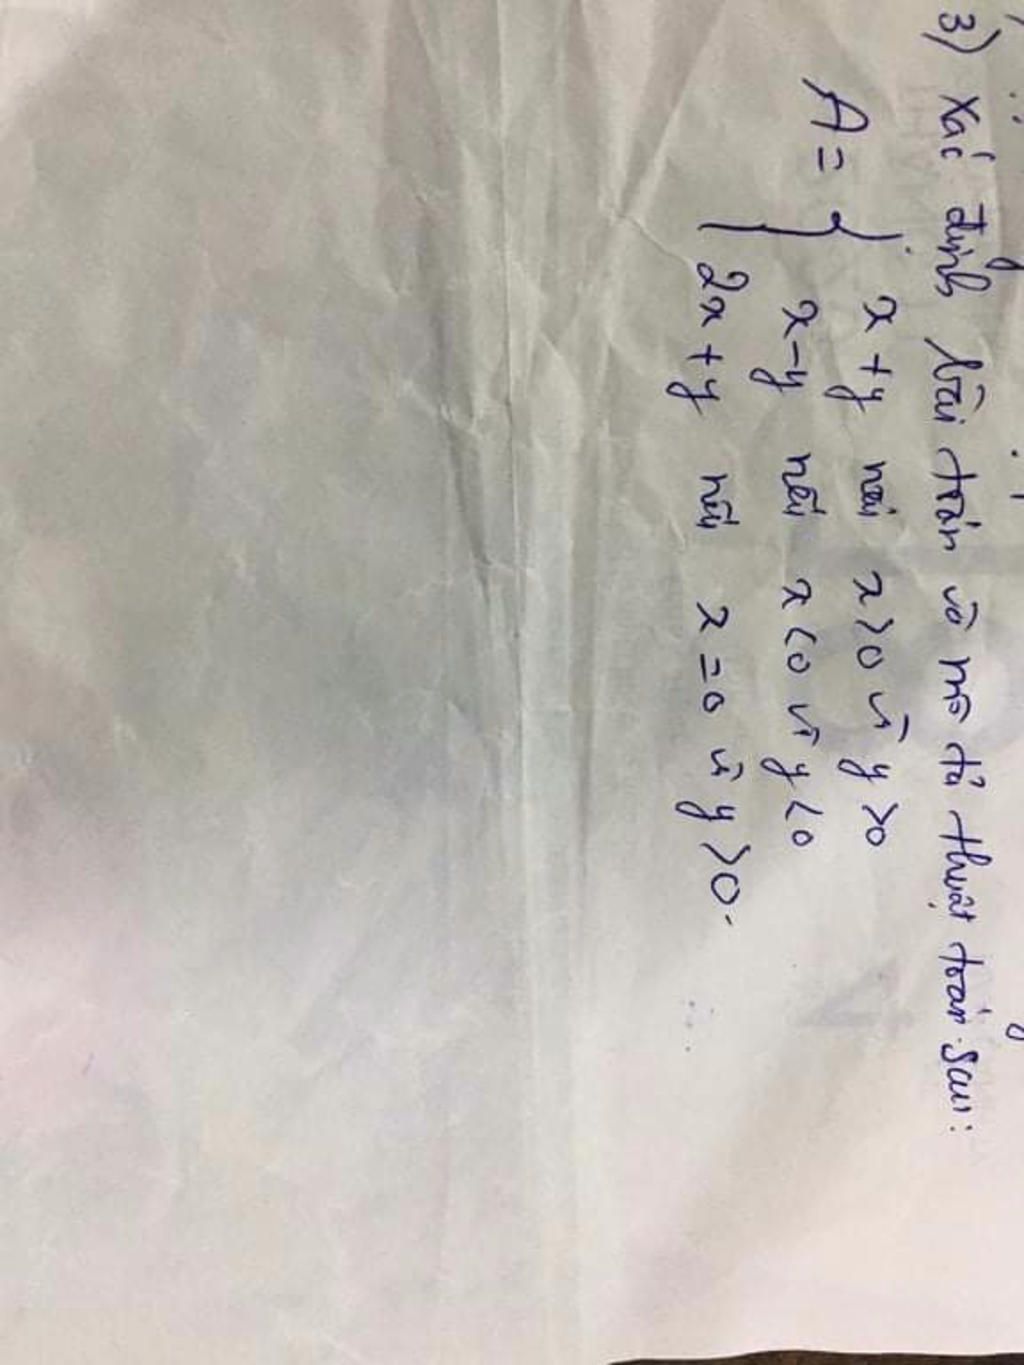 3) Xác định bài toán và mô tả thuật toán sau:
A = { x + y nếu x > 0 và y > 0
x - y nếu x < 0 và y < 0
2x + y nếu x = 0 và y > 0.